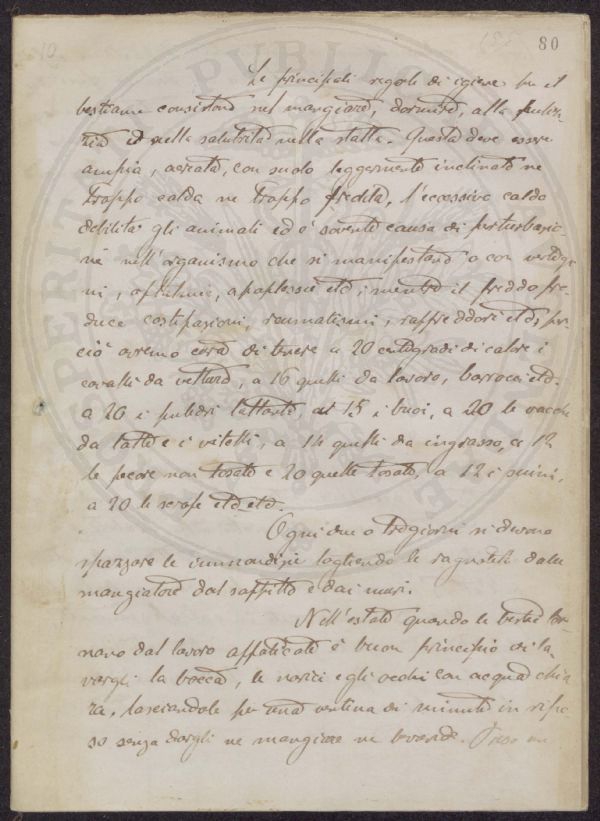 80
Le principali regole di igiene per il
bestiame consistono nel mangiare, dormire, alla pulizia
e nella salubrità nella stalla. Questa deve essere
ampia, aereata, con suolo leggermente inclinato ne
troppo calda ne troppo fredda, l'eccessivo caldo
debilita gli animali ed è sovente causa di perturbazio-
ne nell'organismo che si manifestano o con vertigi-
ni, apoplessie etc; mentre il freddo pro-
duce costipazioni, reumatismi, raffreddori etc; per-
ciò avremo cura di tenere a 20 centigradi di calore i
cavalli da vettura, a 16 quelli da lavoro, barrocci etc.
a 20 i puledri lattanti, ai 15 i buoi, a 20 le vacche
da latte e i vitelli, a 14 quelli da ingrasso, a 12
le pecore non tosate e 20 quelle tosate, a 12 i suini,
a 20 le scrofe etc etc.
Ogni due o tre giorni si devono
spazzare le immondizie togliendo le ragnatele dalle
mangiatore dal soffitto e dai muri.
Nell'estate quando le bestie tor-
nano dal lavoro affaticate è buon principio di la-
vargli la bocca, le narici e gli occhi con acqua chia
ra, lasciandole per una ventina di minuti in ripo
so senza dargli ne mangiare ne bevande.